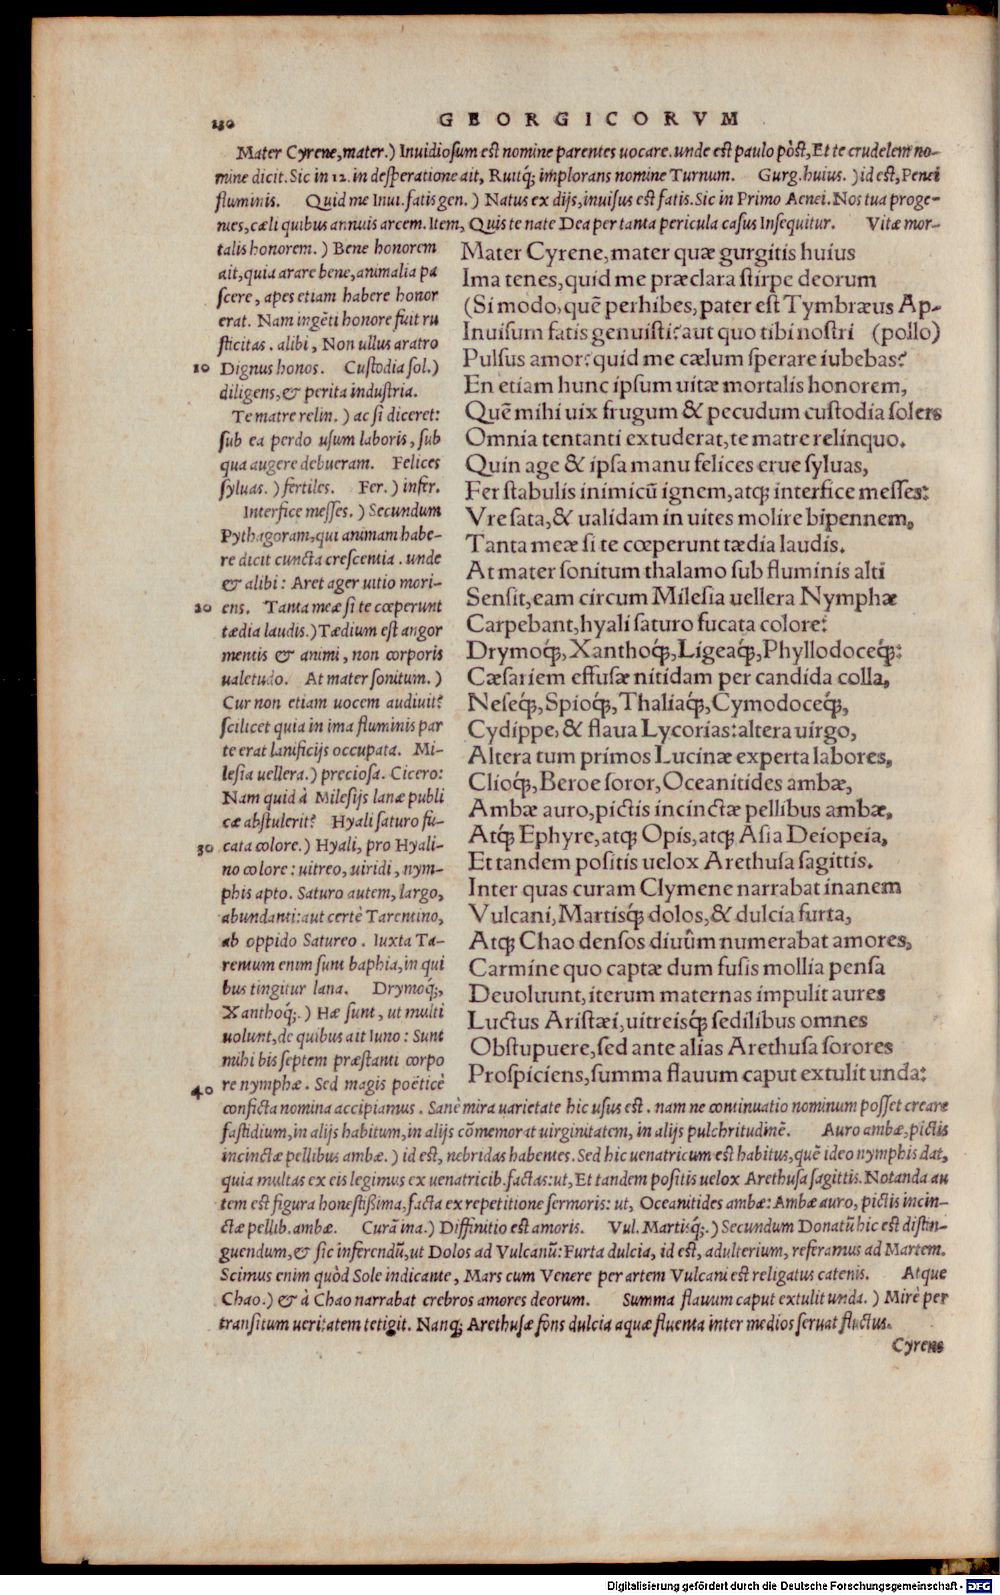 130
GEORGICORVM
Mater Cyrene, mater.) Inuidiosum est nomine parentes uocare. unde est paulo pòst, Et te crudelem no-
mine dicit. Sic in 12. in desperatione ait, Ruitq́; implorans nomine Turnum. Gurg. huius. ) id est, Penei
fluminis. Quid me Inui. fatis gen. ) Natus ex dijs, inuisus est fatis. Sic in Primo Aenei. Nos tua proge-
nies, cæli quibus annuis arcem. Item, Quis te nate Dea per tanta pericula casus Insequitur. Vitæ mor-
talis honorem. ) Bene honorem
ait, quia arare bene, animalia pa
scere, apes etiam habere honor
erat. Nam ingẽti honore fuit ru
sticitas. alibi, Non ullus aratro
10 Dignus honos. Custodia sol.)
diligens, & perita industria.
Te matre relin. ) ac si diceret:
sub ea perdo usum laboris, sub
qua augere debueram. Felices
syluas. ) fertiles. Fer. ) infer.
Interfice messes. ) Secundum
Pythagoram, qui animam habe-
re dicit cuncta crescentia. unde
& alibi: Aret ager uitio mori-
20 ens. Tanta meæ si te cœperunt
tædia laudis.) Tædium est angor
mentis & animi, non corporis
ualetudo. At mater sonitum. )
Cur non etiam uocem audiuit?
scilicet quia in ima fluminis par
te erat lanificijs occupata. Mi-
lesia uellera.) preciosa. Cicero:
Nam quid à Milesijs lanæ publi
cæ abstulerit? Hyali saturo fu-
30 cata colore.) Hyali, pro Hyali-
no colore: uitreo, uiridi, nym-
phis apto. Saturo autem, largo,
abundanti: aut certè Tarentino,
ab oppido Satureo. Iuxta Ta-
rentum enim sunt baphia, in qui
bus tingitur lana. Drymoq́;,
Xanthoq́;.) Hæ sunt, ut multi
uolunt, de quibus ait Iuno: Sunt
mihi bis septem præstanti corpo
40 re nymphæ. Sed magis poëticè
Mater Cyrene, mater quæ gurgitis huius
Ima tenes, quid me præclara stirpe deorum
(Si modo, quẽ perhibes, pater est Tymbræus Ap-
Inuisum fatis genuisti? aut quo tibi nostri (pollo)
Pulsus amor? quid me cælum sperare iubebas?
En etiam hunc ipsum uitæ mortalis honorem,
Quẽ mihi uix frugum & pecudum custodia solers
Omnia tentanti extuderat, te matre relinquo.
Quin age & ipsa manu felices erue syluas,
Fer stabulis inimicũ ignem, atq; interfice messes:
Vre sata, & ualidam in uites molire bipennem,
Tanta meæ si te cœperunt tædia laudis.
At mater sonitum thalamo sub fluminis alti
Sensit, eam circum Milesia uellera Nymphæ
Carpebant, hyali saturo fucata colore:
Drymoq́;, Xanthoq́;, Ligeaq́;, Phyllodoceq́;:
Cæsariem effusæ nitidam per candida colla,
Neseq́;, Spioq́;, Thaliaq́;, Cymodoceq́;,
Cydippe, & flaua Lycorias: altera uirgo,
Altera tum primos Lucinæ experta labores,
Clioq́;, Beroe soror, Oceanitides ambæ,
Ambæ auro, pictis incinctæ pellibus ambæ,
Atq́; Ephyre, atq; Opis, atq; Asia Deiopeia,
Et tandem positis uelox Arethusa sagittis.
Inter quas curam Clymene narrabat inanem
Vulcani, Martisq́; dolos, & dulcia furta,
Atq; Chao densos diuûm numerabat amores,
Carmine quo captæ dum fusis mollia pensa
Deuoluunt, iterum maternas impulit aures
Luctus Aristæi, uitreisq́; sedilibus omnes
Obstupuere, sed ante alias Arethusa sorores
Prospiciens, summa flauum caput extulit unda:
conficta nomina accipiamus. Sanè mira uarietate hic usus est. nam ne continuatio nominum posset creare
fastidium, in alijs habitum, in alijs cõmemorat uirginitatem, in alijs pulchritudinẽ. Auro ambæ, pictis
incinctæ pellibus ambæ. ) id est, nebridas habentes. Sed hic uenatricum est habitus, quẽ ideo nymphis dat,
quia multas ex eis legimus ex uenatricib. factas: ut, Et tandem positis uelox Arethusa sagittis. Notanda au
tem est figura honestissima, facta ex repetitione sermonis: ut, Oceanitides ambæ: Ambæ auro, pictis incin-
ctæ pellib. ambæ. Curã ina.) Diffinitio est amoris. Vul. Martisq́;.) Secundum Donatũ hic est distin-
guendum, & sic inferendũ, ut Dolos ad Vulcanũ: Furta dulcia, id est, adulterium, referamus ad Martem.
Scimus enim quòd Sole indicante, Mars cum Venere per artem Vulcani est religatus catenis. Atque
Chao.) & à Chao narrabat crebros amores deorum. Summa flauum caput extulit unda. ) Mirè per
transitum ueritatem tetigit. Nanq; Arethusæ fons dulcia aquæ fluenta inter medios seruat fluctus.
Cyrene
Digitalisierung gefördert durch die Deutsche Forschungsgemeinschaft - DFG